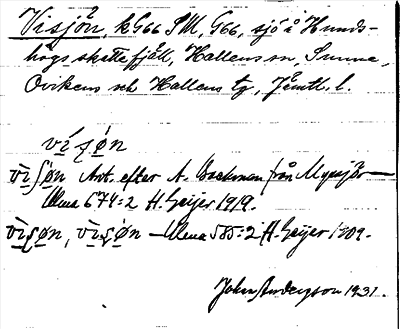 Visjön, k G66 SM, G66, sjö å Hunds-
högs skattefjäll, Hallens sn, Sunne,
Ovikens och Hallens tg, Jämtl. l.
Ant. efter A. Backman från Mysjö
Ulma 674:2 H. Geijer 1919.
Ulma 585:2 H. Geijer 1909.
John Andersson 1931.